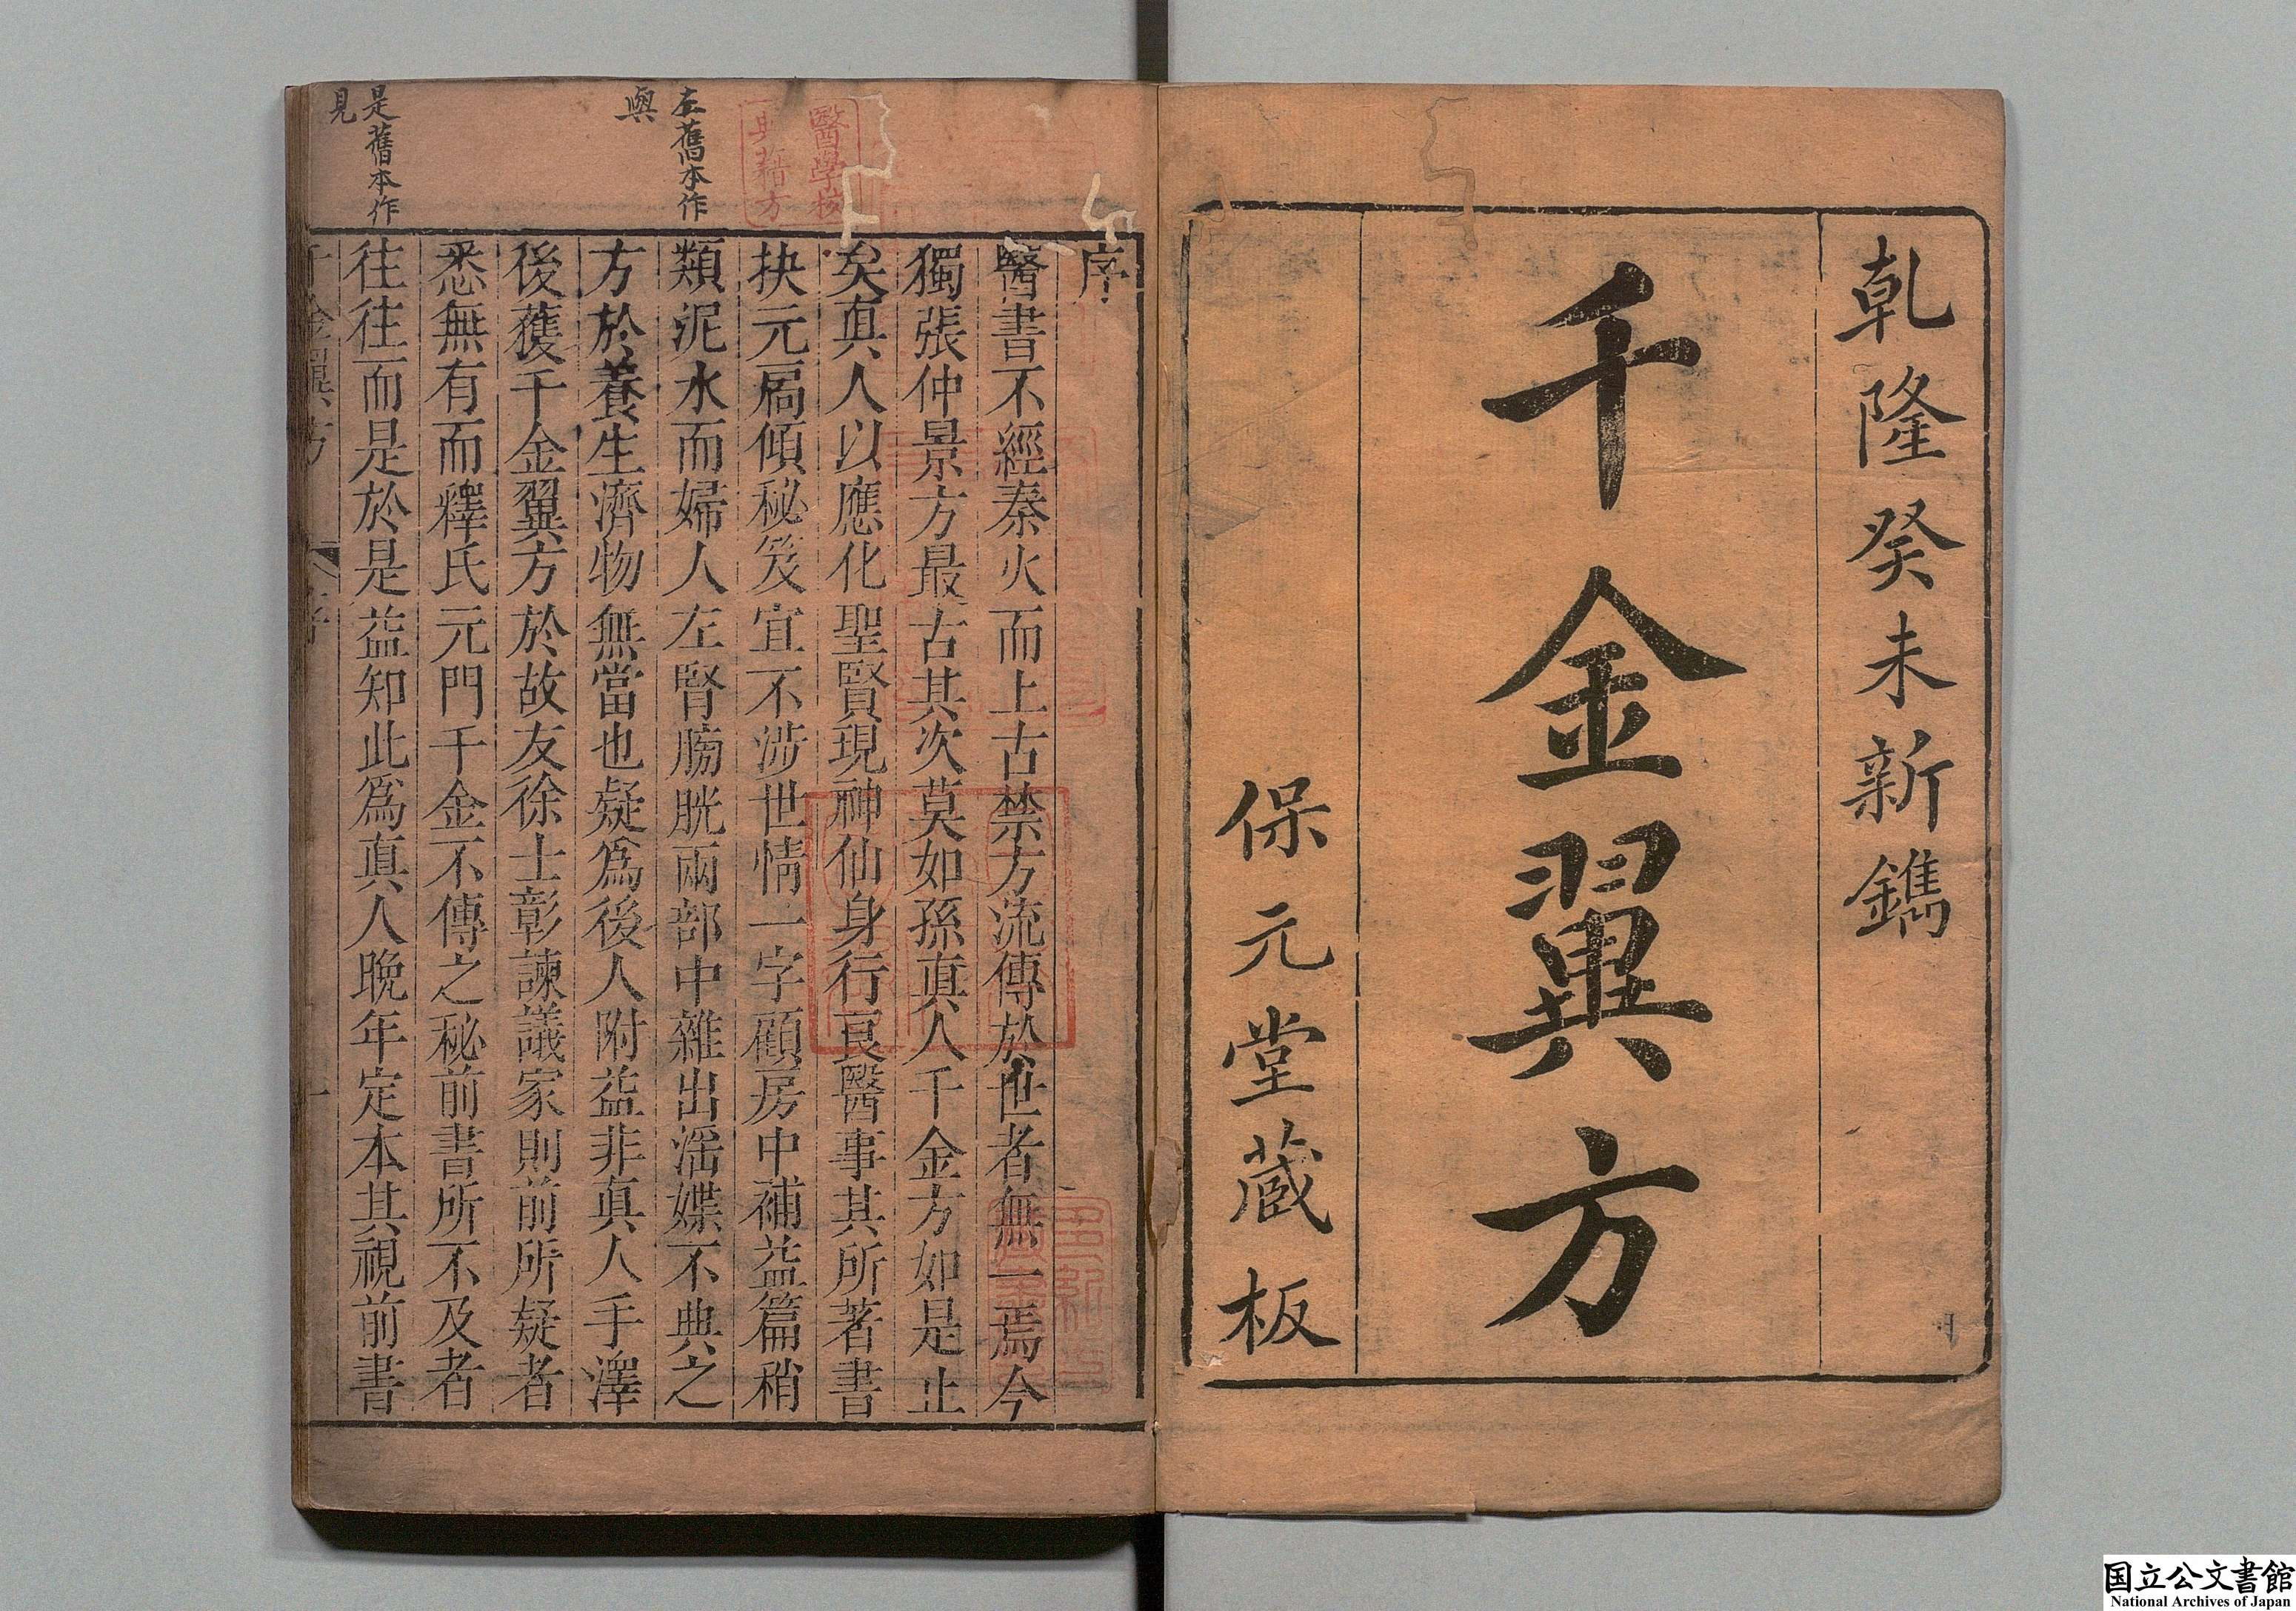 乾隆癸未新鐫
千金翼方
保元堂藏板
左舊本作
與
是舊本作
見
醫學校
典藉方
序
醫書不經秦火而上古禁方流傳於世者無一焉今
獨張仲景方最古其次莫如孫真人千金方如是止
矣真人以應化聖賢現神仙身行良醫事其所著書
抉元扄傾秘笈宜不涉世情一字顧房中補益篇稍
類泥水而婦人左腎膀胱兩部中雜出滛媟不典之
方於養生濟物無當也疑為後人附益非真人手澤
後獲千金翼方於故友徐士彰諫議家則前所疑者
悉無有而釋氏元門千金不傳之秘前書所不及者
往往而是於是益知此為真人晚年定本其視前書
千金翼方
序
一
国立公文書館
National Archives of Japan